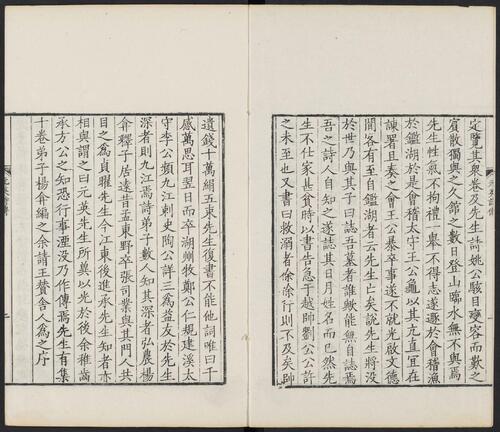 定覽其衆卷及先生詩姚公駭目變容而歎之
賓散獨與之久館之數日登山臨水無不與焉
先生性氣不拘禮一舉不得志遂遯於會稽漁
於鑑湖於是會稽太守王公龜以其亢直宜在
諫署且奏之會王公暴卒事遂不就光啟文德
間客有至自鑑湖者云先生亡矣說先生將没
於世乃與其子曰誌吾墓者誰歟能無自誌焉
吾之詩人自知之遂誌其日月姓名而已然先
生不仕家甚貧時以書告急于越帥劉公公許
之未至也又書曰救溺者徐徐行則不及矣帥
遺錢十萬絹五束先生復書不能他詞唯曰千
感萬思耳翌日而卒湖州牧鄭公仁規建溪太
守李公頻九江刺史陶公詳三為益友於先生
深者則九江焉詩弟子數人知其深者弘農楊
弇釋子居遠昔孟東野卒張司業與其門人共
目之為貞曜先生今江東後進承先生知者亦
相與謂之曰元英先生所冀以光於後余稚齒
承方公之知恐行事湮没乃作傳焉先生有集
十卷弟子楊弇編之余請王贊舍人為之序